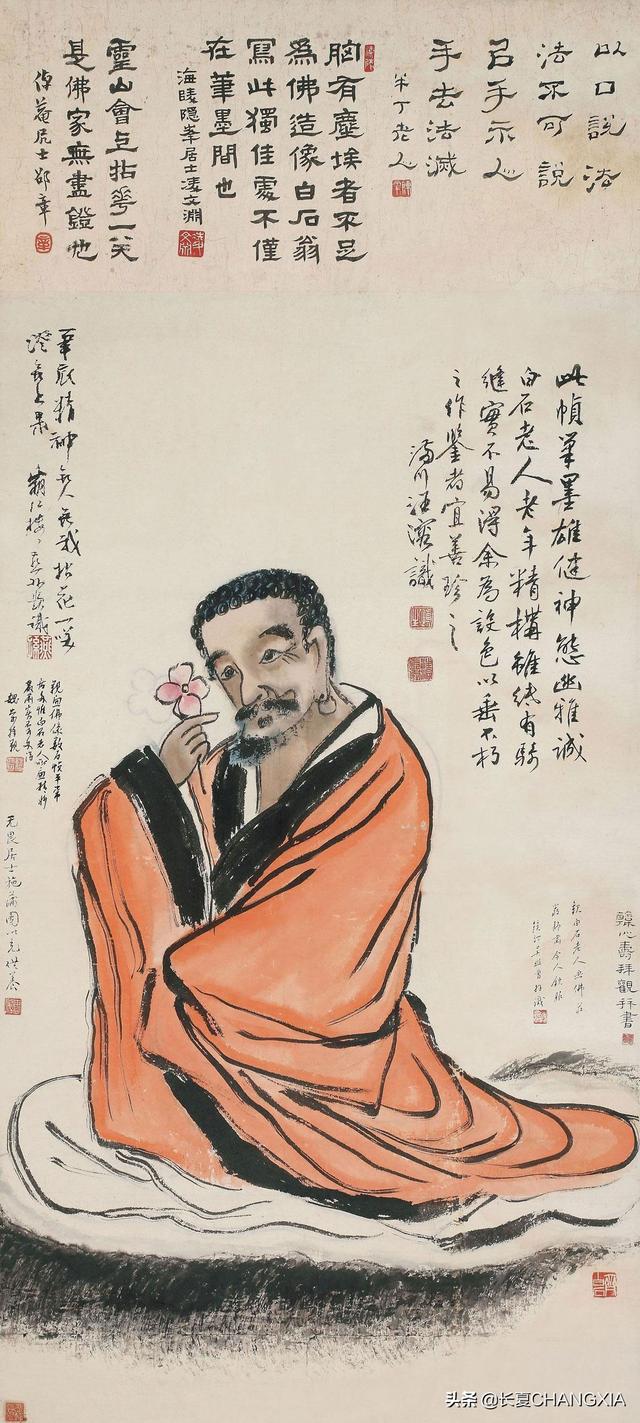 以口說法
法不可說
以手示人
手去法滅
半丁老人
胸有塵埃者不足
為佛造像白石翁
寫此獨佳處不僅
在筆墨間也
海陵隱峯居士淩文淵
靈山會上拈花一笑
是佛家無盡鐙也
倬盦居士邵章
此幀筆墨雄健神態幽雅誠
白石老人老年精構雖然有騎
縫實不易得余為設色以垂不朽
之作鑒者宜善珍之
川汪溶識
筆底精神無人無我拈花一笑
證無上果
无畏居士施蒲團以充供養
心壽拜觀拜書
头条 @长夏CHANGXIA